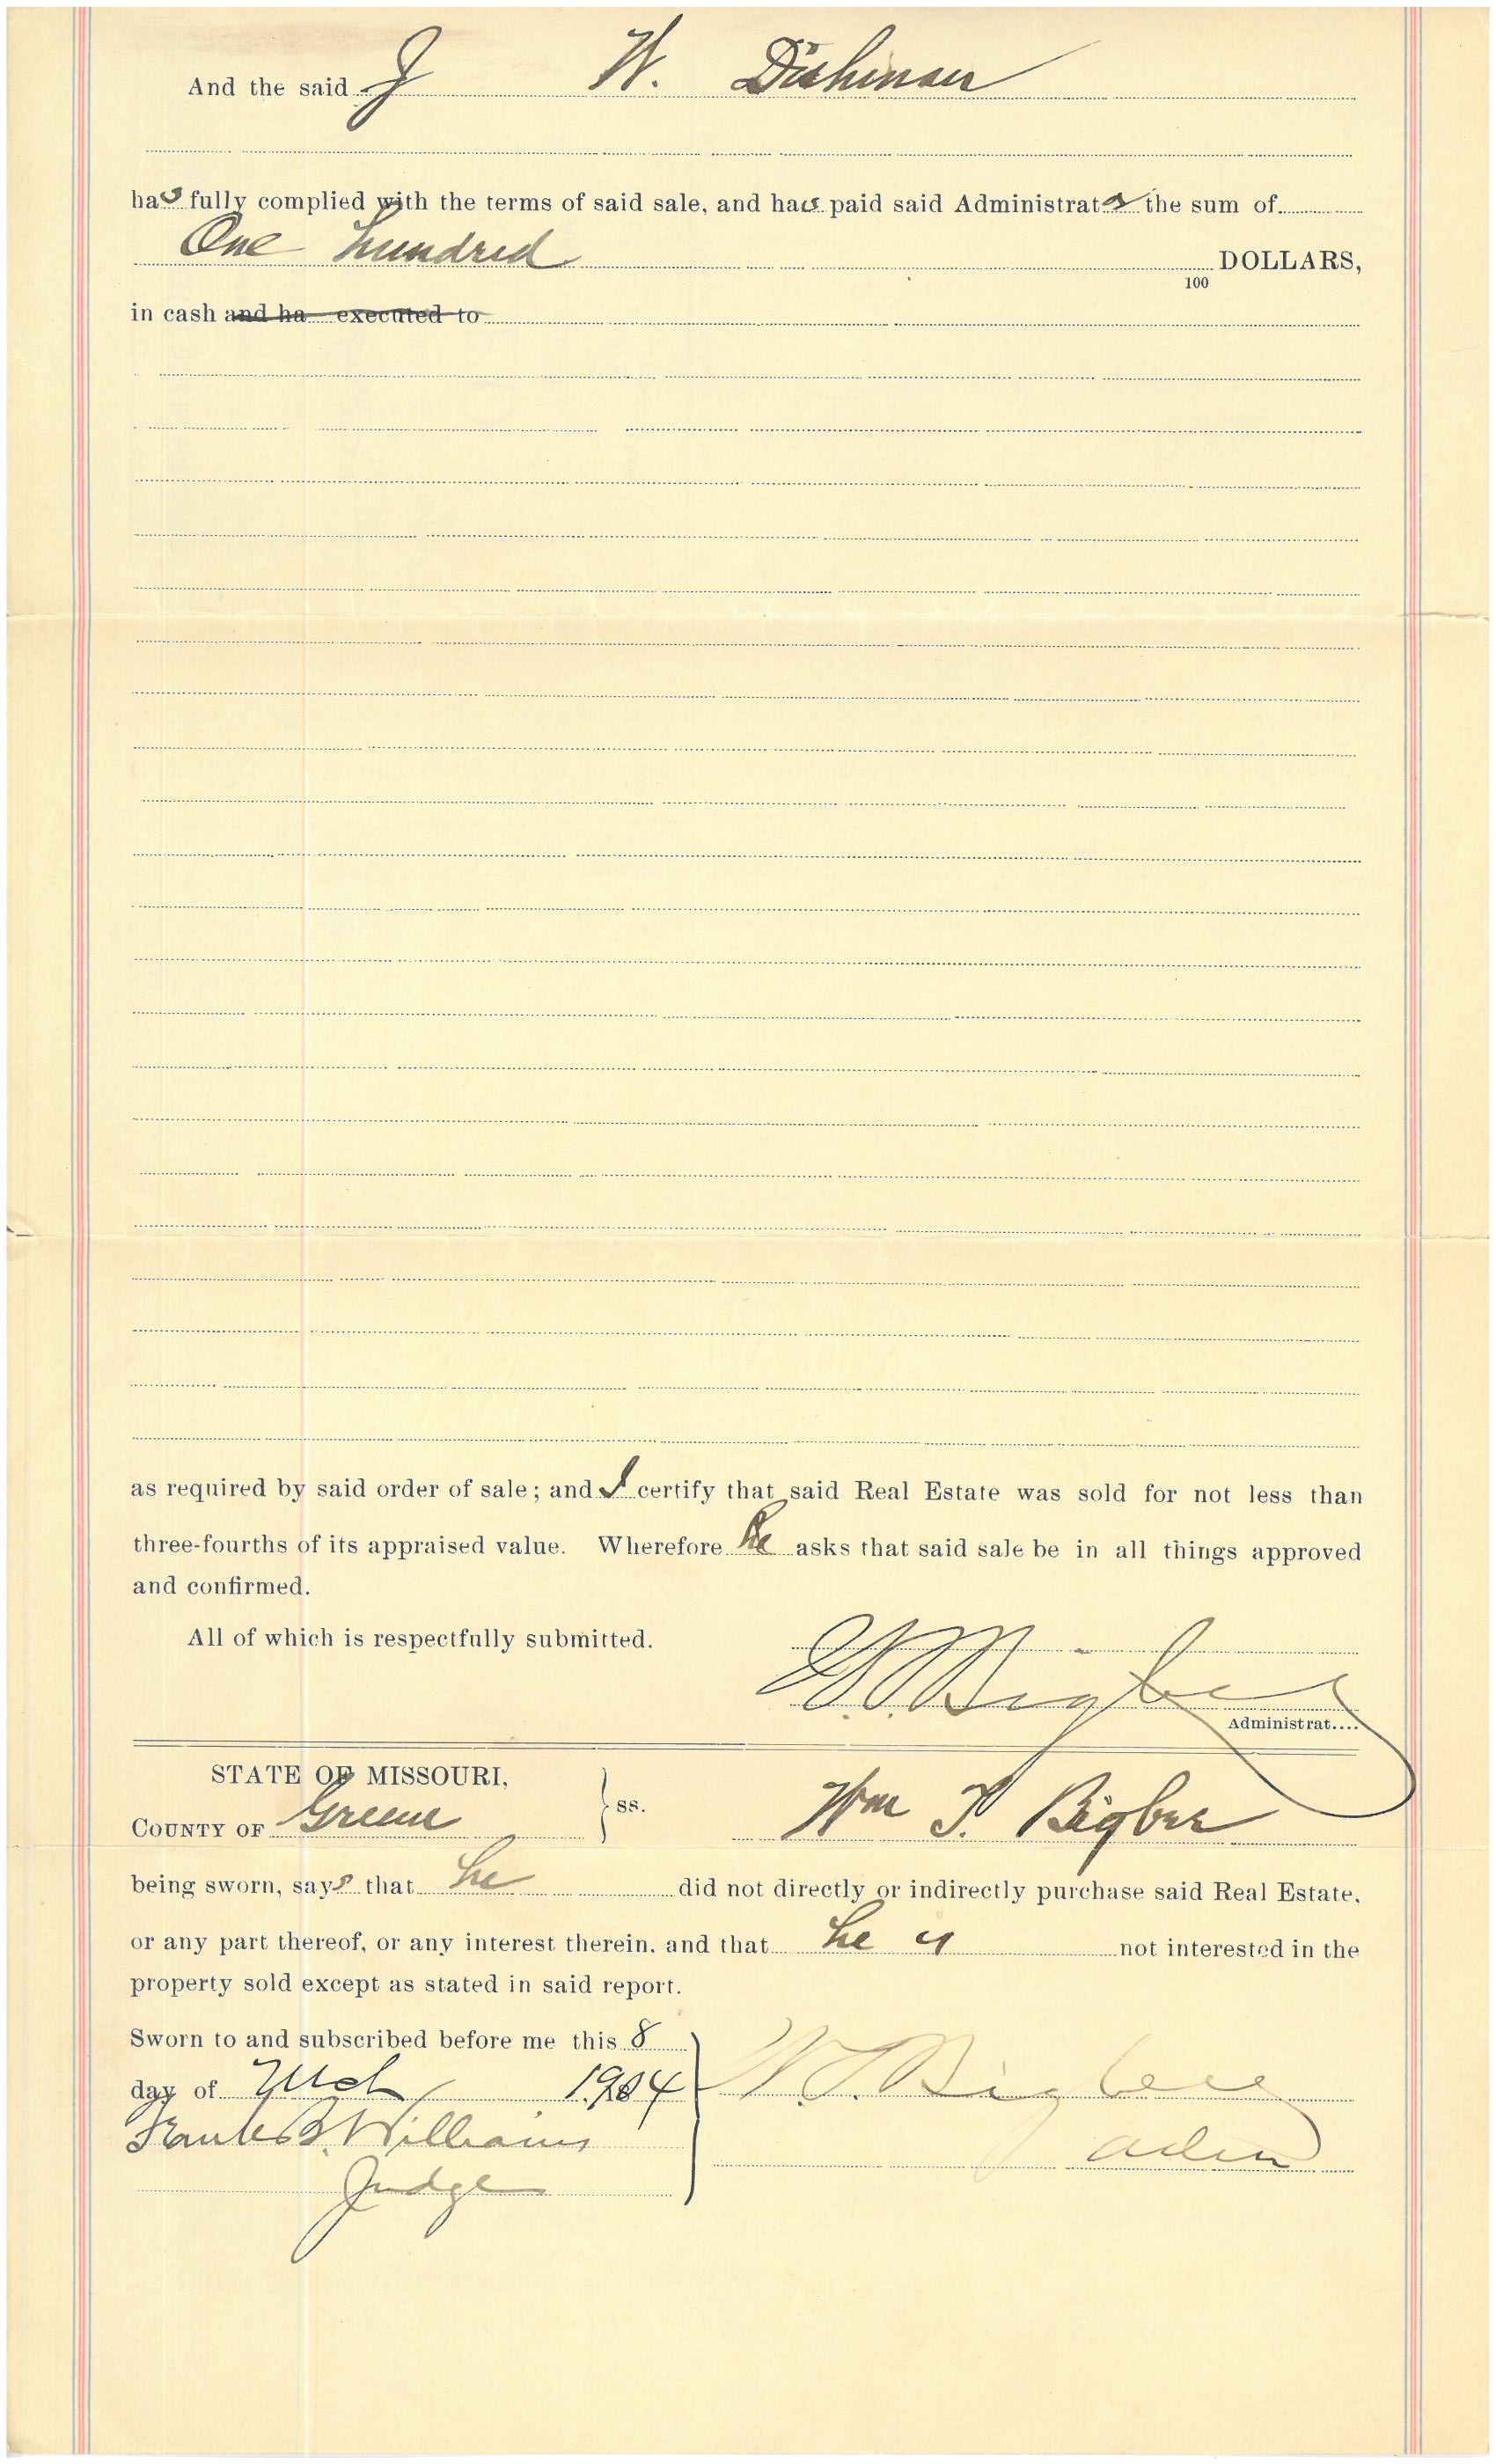 And the said J W. Dickinson
has fully complied with the terms of said sale, and has paid said Administrator the sum of
One hundred DOLLARS,
100
in cash and ha executed to
as required by said order of sale; and I certify that said Real Estate was sold for not less than
three-fourths of its appraised value. Wherefore he asks that said sale be in all things approved
and confirmed.
All of which is respectfully submitted.
Administrat....
STATE OF MISSOURI,
COUNTY OF Greene } ss. Wm T. Bigbee
being sworn, says that he did not directly or indirectly purchase said Real Estate,
or any part thereof, or any interest therein, and that he is not interested in the
property sold except as stated in said report.
Sworn to and subscribed before me this 8
day of Mch 1904 W.T. Bigbee
Williams Adm
Judge